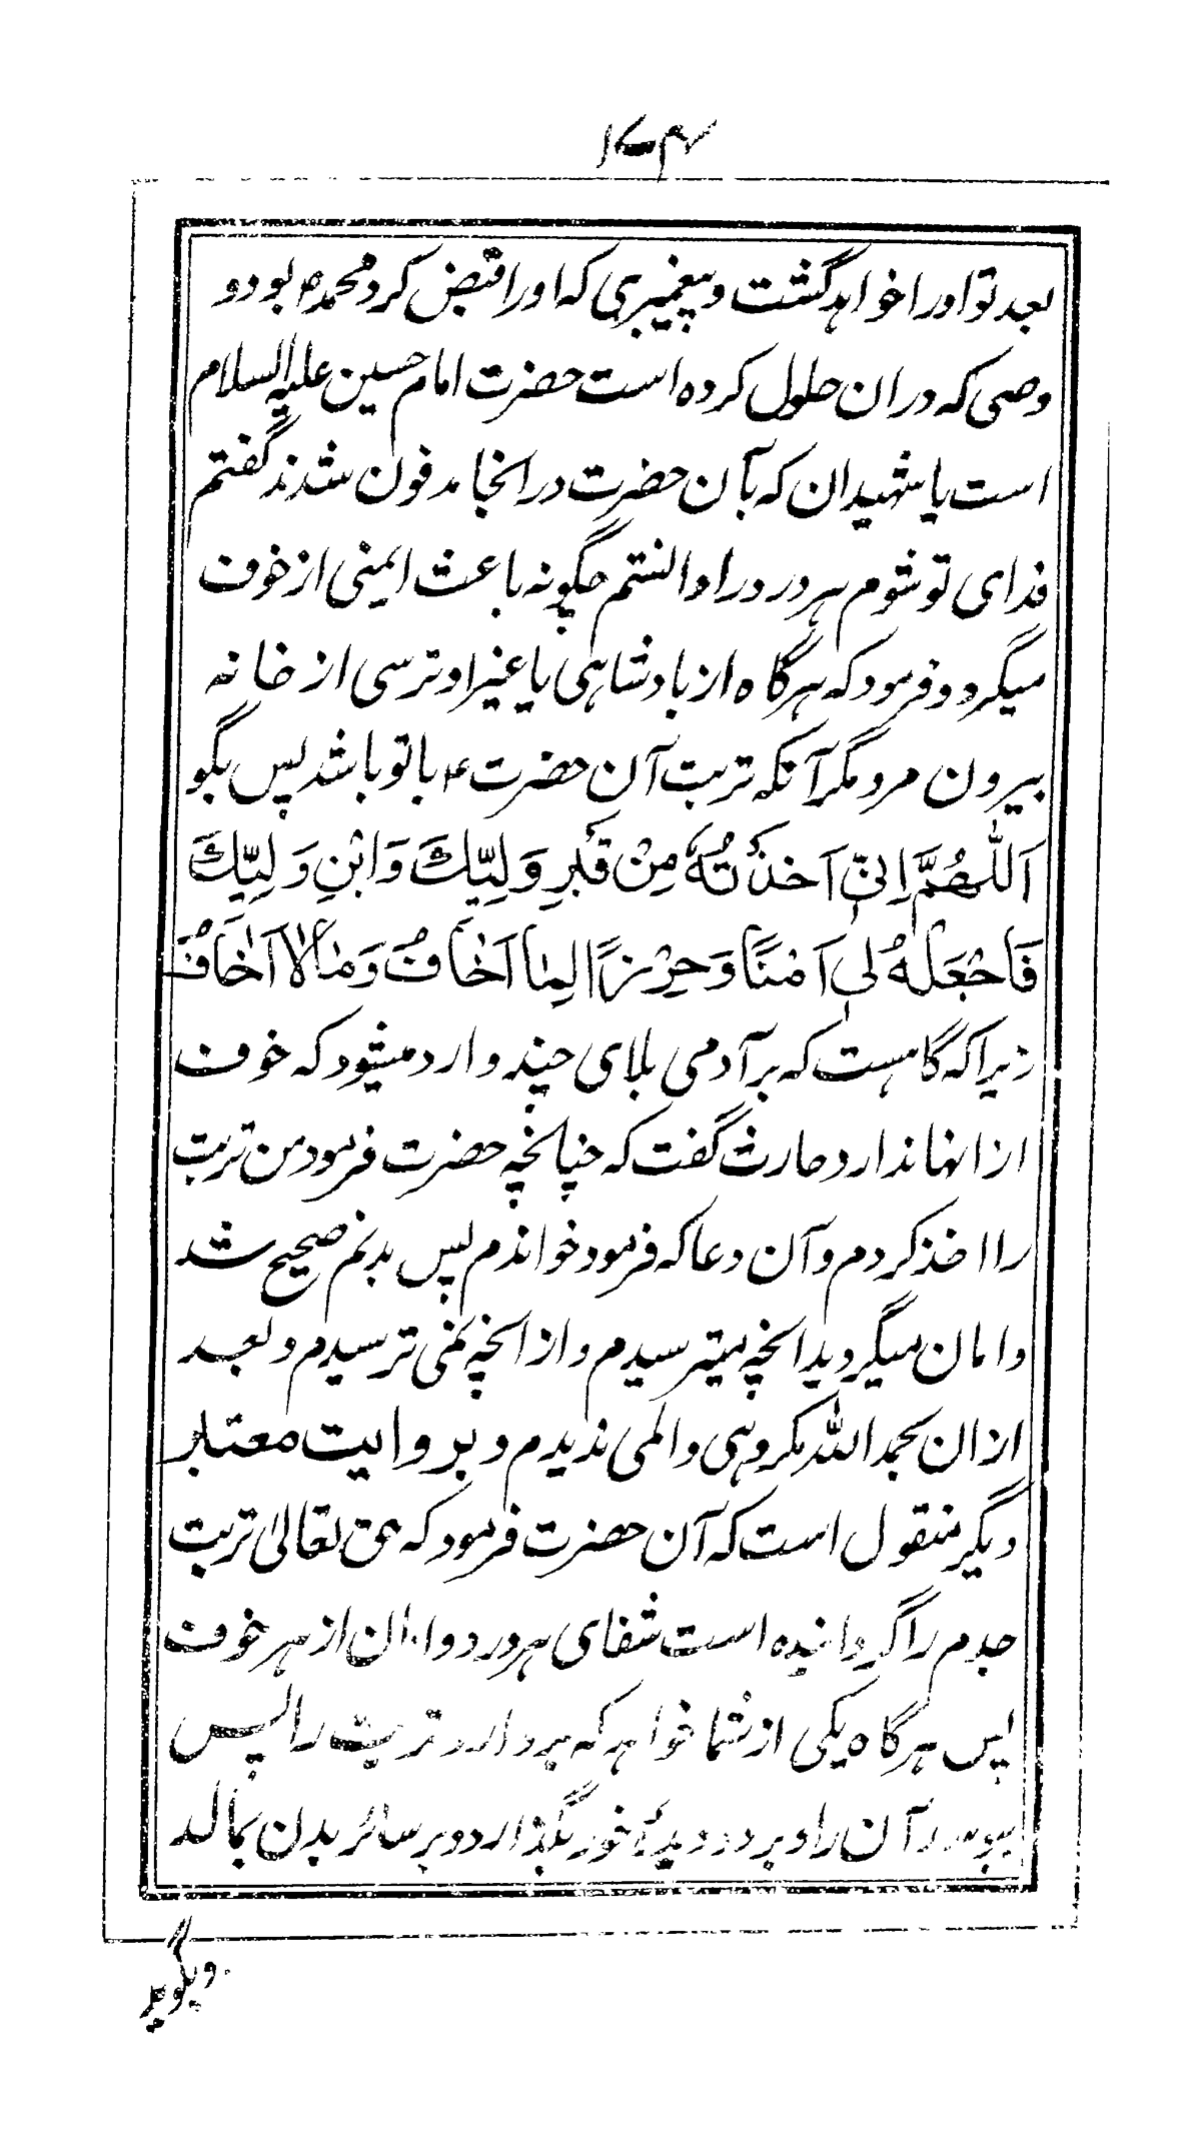 بعد تو او را خواهد گشت و پیغمبری که او را قبض کرد محمد ص بود و و
وصی که در ان حلول کرده است حضرت امام حسین علیه السلام
است یا شهیدان که بآن حضرت در انجا مدفون شدند گفتم
فدای تو شوم هر درد را دانستم چگونه باعث ایمنی از خوف
میگردد فرمود که هرگاه از بادشاهی یا غیر او ترسی از خانه
بیرون مرو مگر آنکه تربت آن حضرت ع با تو باشد پس بگو
اَللّٰهُمَّ اِنِّی اَخَذْتُهٗ مِنْ قَبْرِ وَلِیِّكَ وَابْنِ وَلِیِّكَ
فَاجْعَلْهُ لِی اَمْنًا وَحِرْزًا لِمَا اَخَافُ وَمَا لَا اَخَافُ
زیرا که گاهست که بر آدمی بلای چند وارد میشود که خوف
از انها ندارد حارث گفت که چنانچه حضرت فرمود من تربت
را اخذ کردم و آن دعا که فرمود خواندم پس بدنم صحیح شد
و امان میگردید انچه میترسیدم و از انچه نمی ترسیدم و بعد
از ان بحمد الله مکروهی و المی ندیدم و بروایت معتبر
دیگر منقول است که آن حضرت فرمود که حق تعالیٰ تربت
جدم را گردانیده است شفای هر درد و امان از هر خوف
پس هرگاه یکی از شما خواهد که بردارد تربت را پس
ببوسد آن را و بر دو دیدهٔ خود بگذارد و بر سائر بدن بمالد
و بگوید